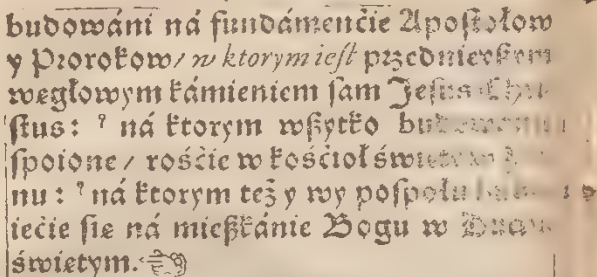 budowáni ná fundámenćie Apostołow
y Prorokow/ w ktorym iest przednieyszym
węgłowym kámieniem sam Jesus
stus: ná ktorym wszytko
spoione/ rośćie w kośćioł
nu: ná ktorym też y wy pospołu
iećie się ná mieszkánie Bogu w
świętym.